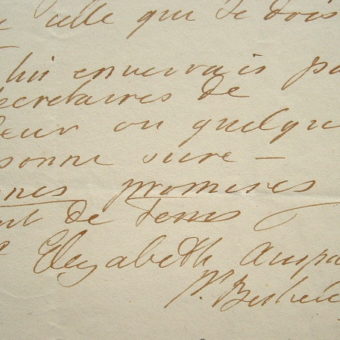 celle que je dois
lui enverrais pa
secretaires de
eur ou quelqu
sonne sure —
nes promises
de tems
Elizabeth